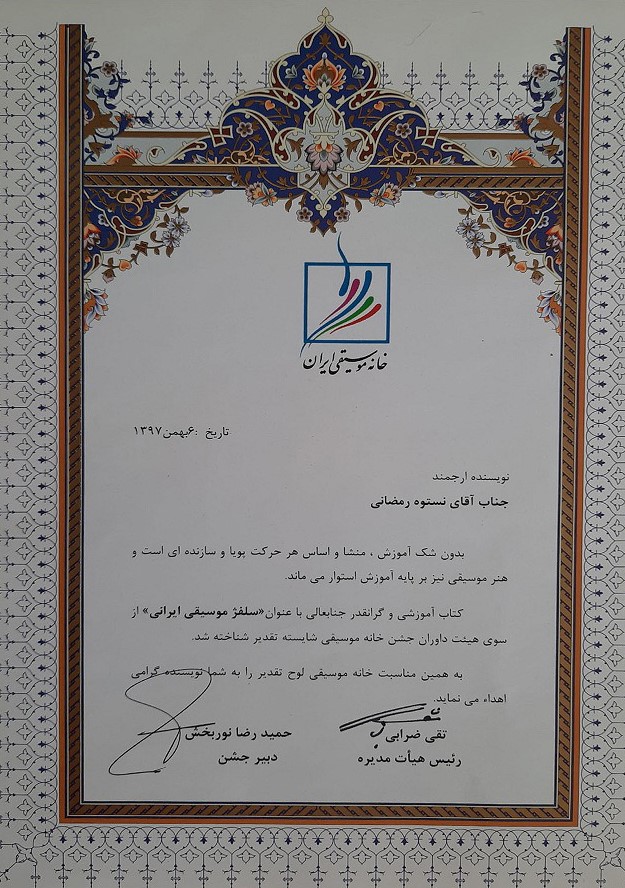 خانه موسیقی ایران
تاریخ :۶بهمن۱۳۹۷
نویسنده ارجمند
جناب آقای نستوه رمضانی
بدون شک آموزش ، منشا و اساس هر حرکت پویا و سازنده ای است و
هنر موسیقی نیز بر پایه آموزش استوار می ماند.
کتاب آموزشی و گرانقدر جنابعالی با عنوان«سلفژ موسیقی ایرانی» از
سوی هیئت داوران جشن خانه موسیقی شایسته تقدیر شناخته شد.
به همین مناسبت خانه موسیقی لوح تقدیر را به شما نویسنده گرامی
اهداء می نماید.
تقی ضرابی حمید رضا نوربخش
رئیس هیأت مدیره دبیر جشن